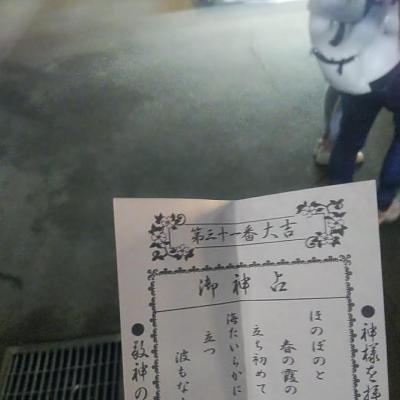 第三十一番 大吉
御神占
●神様を拝
ほのぼのと
春の霞の
立ち初めて
海たいらかに
立つ
波もな
●敬神の